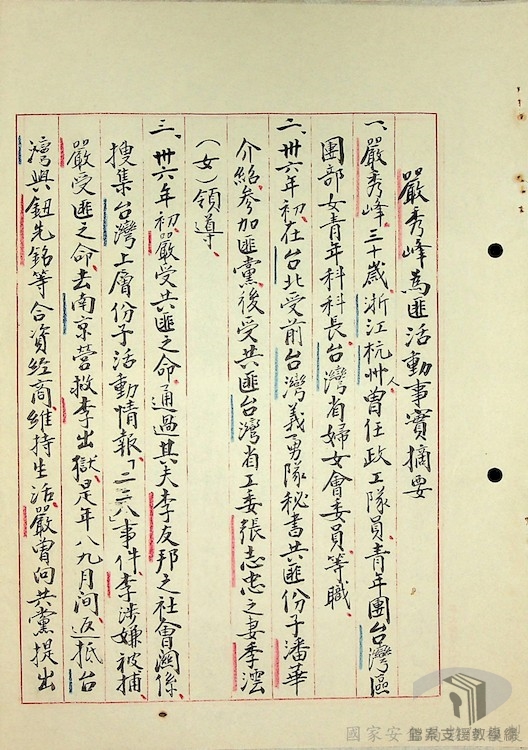 嚴秀峰為匪活動事實摘要
一、嚴秀峰、三十歲、浙江杭州人、曾任政工隊員、青年團台灣區
團部女青年科科長、台灣省婦女會委員等職、
二、卅六年初、在台北受前台灣義勇隊秘書共匪份子潘華
介紹、參加匪黨後受共匪台灣省工委張志忠之妻季澐
(女)領導、
三、卅六年初、嚴受共匪之命、通過其夫李友邦之社會關係、
搜集台灣上層份子活動情報、「二二八」事件、李涉嫌被捕、
嚴受匪之命、去南京營救李出獄、是年八九月間、返抵台
灣與鈕先銘等合資經商、維持生活、嚴曾向共黨提出
國家安
檔案支援教學網